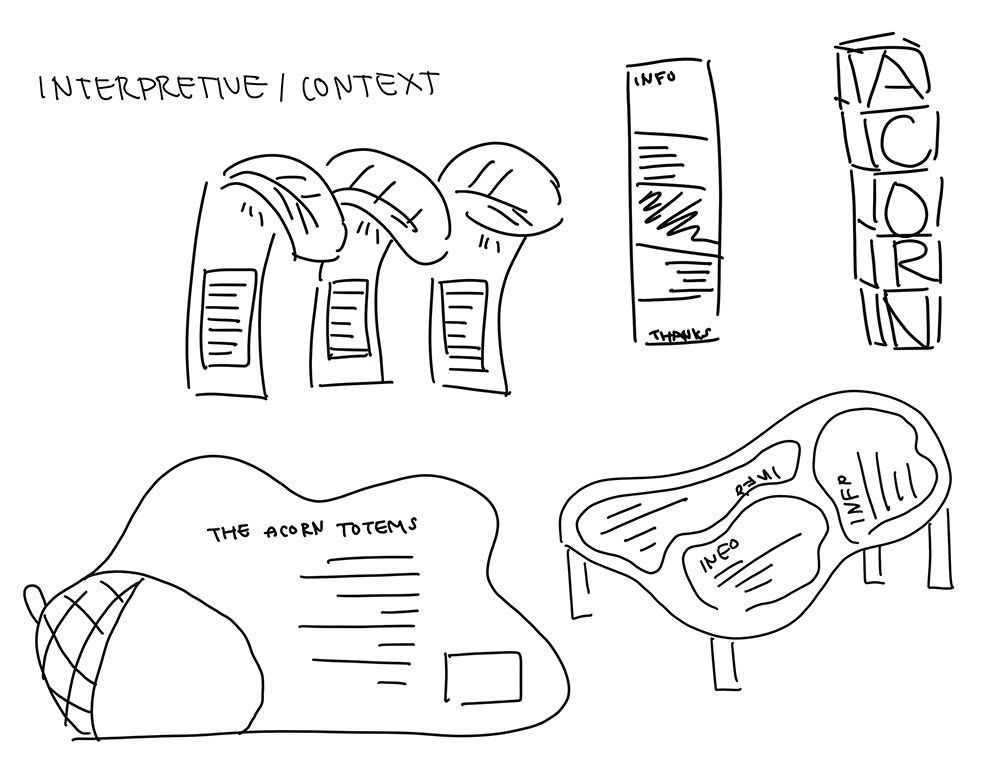 INTERPRETIVE / CONTEXT
INFO
THANKS
ACORN
THE ACORN TOTEMS
INFO
INFO
INFO